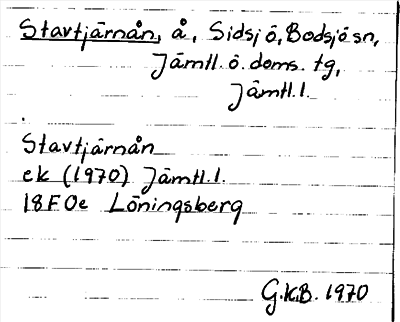 Stavtjärnån, å, Sidsjö, Bodsjö sn,
Jämtl. ö. doms. tg,
Jämtl. l.
Stavtjärnån
ek (1970) Jämtl. l.
18F Oe Löningsberg
G.K.B. 1970